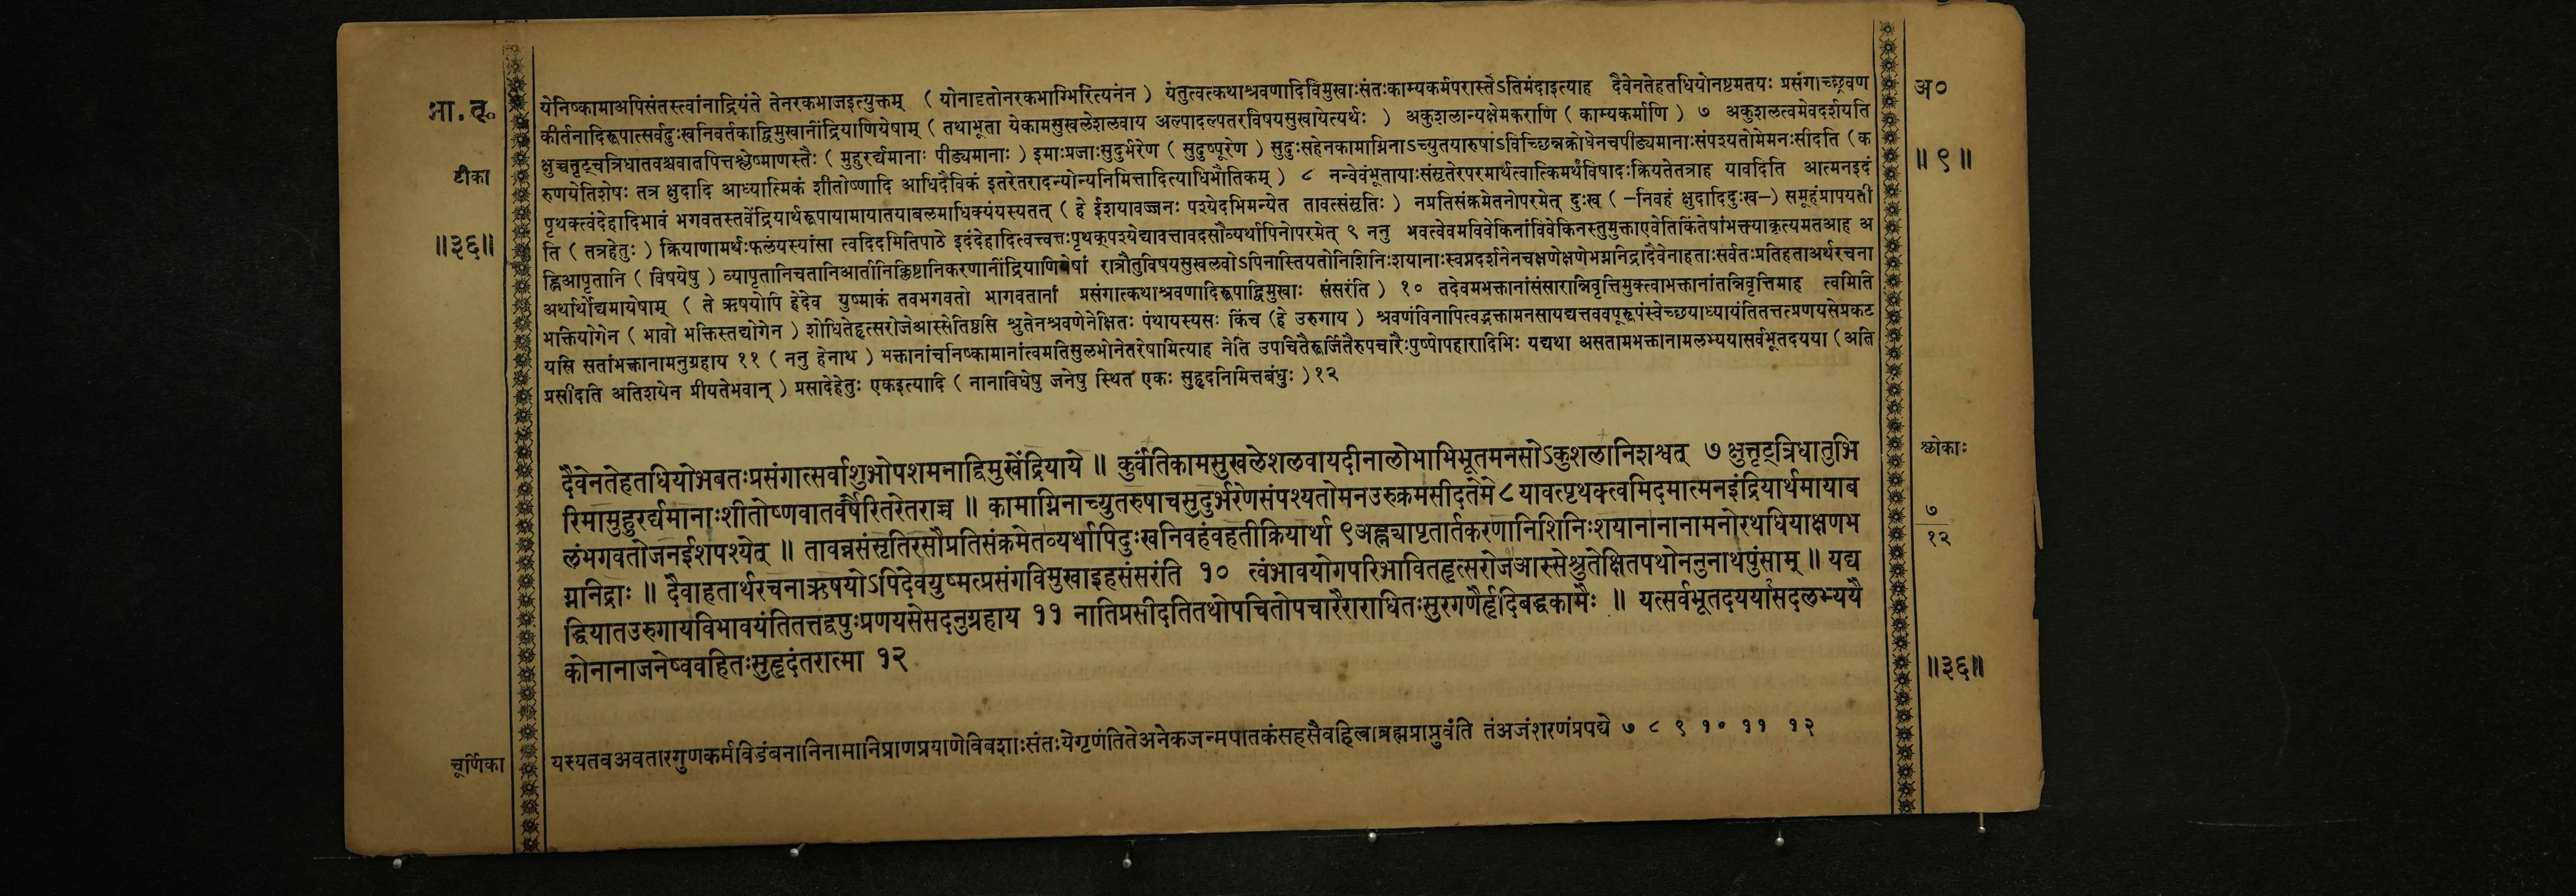 भा. तृ.
टीका
॥३६॥
येनिष्कामाअपिसंतस्त्वांनाद्रियंते तेनरकभाजइत्युक्तम् ( योनादृतोनरकभाग्भिरित्यनेन ) यंतुत्वत्कथाश्रवणादिविमुखाःसंतःकाम्यकर्मपरास्तेऽतिमंदाइत्याह दैवेनतेहतधियोनष्टमतयः प्रसंगाच्छ्रवण
कीर्तनादिरूपात्सर्वदुःखनिवर्तकाद्विमुखानींद्रियाणियेषाम् ( तथाभूता येकामसुखलेशलवाय अल्पादल्पतरविषयसुखायेत्यर्थः ) अकुशलान्यक्षेमकराणि ( काम्यकर्माणि ) ७ अकुशलत्वमेवदर्शयति
क्षुच्चतृट्चत्रिधातवश्चवातपित्तश्लेष्माणस्तैः ( मुहुरर्द्यमानाः पीड्यमानाः ) इमाःप्रजाःसुदुर्भरेण ( सुदुष्पूरेण ) सुदुःसहेनकामाग्निनाऽच्युतयारुषाऽविच्छिन्नक्रोधेनचपीड्यमानाःसंपश्यतोमेमनःसीदति ( क
रुणयेतिशेषः तत्र क्षुदादि आध्यात्मिकं शीतोष्णादि आधिदैविकं इतरेतरादन्योन्यनिमित्तादित्याधिभौतिकम् ) ८ नन्वेवंभूतायाःसंसृतेरपरमार्थत्वात्किमर्थंविषादःक्रियतेतत्राह यावदिति आत्मनइदं
पृथक्त्वंदेहादिभावं भगवतस्तवेंद्रियार्थरूपायामायातयाबलमाधिक्यंयस्यतत् ( हे ईशयावज्जनः पश्येदभिमन्येत तावत्संसृतिः ) नप्रतिसंक्रमेतनोपरमेत् दुःख ( –निवहं क्षुदादिदुःख–) समूहंप्रापयती
ति ( तत्रहेतुः ) क्रियाणामर्थःफलंयस्यांसा त्वदिदमितिपाठे इदंदेहादित्वत्त्वत्तःपृथक्पश्येद्यावत्तावदसौव्यर्थापिनोपरमेत् ९ ननु भवत्वेवमविवेकिनांविवेकिनस्तुमुक्ताएवेतिकिंतेषांभक्त्याकृत्यमतआह अ
ह्निआपृतानि ( विषयेषु ) व्यापृतानिचतानिआर्तानिक्लिष्टानिकरणानींद्रियाणियेषां रात्रौतुविषयसुखलवोऽपिनास्तियतोनिशिनिःशयानाःस्वप्नदर्शनेनचक्षणेक्षणेभग्ननिद्रादैवेनाहताःसर्वतःप्रतिहताअर्थरचना
अर्थार्थोद्यमायेषाम् ( ते ऋषयोपि हेदेव युष्माकं तवभगवतो भागवतानां प्रसंगात्कथाश्रवणादिरूपाद्विमुखाः संसरंति ) १० तदेवमभक्तानांसंसारान्निवृत्तिमुक्त्वाभक्तानांतन्निवृत्तिमाह त्वमिति
भक्तियोगेन ( भावो भक्तिस्तद्योगेन ) शोधितेहृत्सरोजेआस्सेतिष्ठसि श्रुतेनश्रवणेनेक्षितः पंथायस्यसः किंच (हे उरुगाय ) श्रवणंविनापित्वद्भक्तामनसायद्यत्तववपूरूपंस्वेच्छयाध्यायंतितत्तत्प्रणयसेप्रकट
यसि सतांभक्तानामनुग्रहाय ११ ( ननु हेनाथ ) भक्तानांचनिष्कामानांत्वमतिसुलभोनेतरेषामित्याह नेति उपचितैरूर्जितैरुपचारैःपुष्पोपहारादिभिः यद्यथा असतामभक्तानामलभ्ययासर्वभूतदयया ( अति
प्रसीदति अतिशयेन प्रीयतेभवान् ) प्रसादेहेतुः एकइत्यादि ( नानाविधेषु जनेषु स्थित एकः सुहृदनिमित्तबंधुः ) १२
दैवेनतेहतधियोभवतःप्रसंगात्सर्वाशुभोपशमनाद्विमुखेंद्रियाये ॥ कुर्वंतिकामसुखलेशलवायदीनालोभाभिभूतमनसोऽकुशलानिशश्वत् ७ क्षुत्तृट्त्रिधातुभि
रिमामुहुरर्द्यमानाःशीतोष्णवातवर्षैरितरेतराच्च ॥ कामाग्निनाच्युतरुषाचसुदुर्भरेणसंपश्यतोमनउरुक्रमसीदतेमे ८ यावत्पृथक्त्वमिदमात्मनइंद्रियार्थमायाब
लंभगवतोजनईशपश्येत् ॥ तावन्नसंसृतिरसौप्रतिसंक्रमेतव्यर्थापिदुःखनिवहंवहतीक्रियार्था ९ अह्न्यापृतार्तकरणानिशिनिःशयानानानामनोरथधियाक्षणभ
ग्ननिद्राः ॥ दैवाहतार्थरचनाऋषयोऽपिदेवयुष्मत्प्रसंगविमुखाइहसंसरंति १० त्वंभावयोगपरिभावितहृत्सरोजआस्सेश्रुतेक्षितपथोननुनाथपुंसाम् ॥ यद्य
द्धियातउरुगायविभावयंतितत्तद्वपुःप्रणयसेसदनुग्रहाय ११ नातिप्रसीदतितथोपचितोपचारैराराधितःसुरगणैर्हृदिबद्धकामैः ॥ यत्सर्वभूतदययासदलभ्ययै
कोनानाजनेष्ववहितःसुहृदंतरात्मा १२
चूर्णिका
यस्यतवअवतारगुणकर्मविडंबनानिनामानिप्राणप्रयाणेविवशाःसंतःयेगृणंतितेअनेकजन्मपातकंसहसैवहित्वाब्रह्मप्राप्नुवंति तंअजंशरणंप्रपद्ये ७ ८ ९ १० ११ १२
अ०
॥ ९ ॥
श्लोकाः
७
१२
॥३६॥